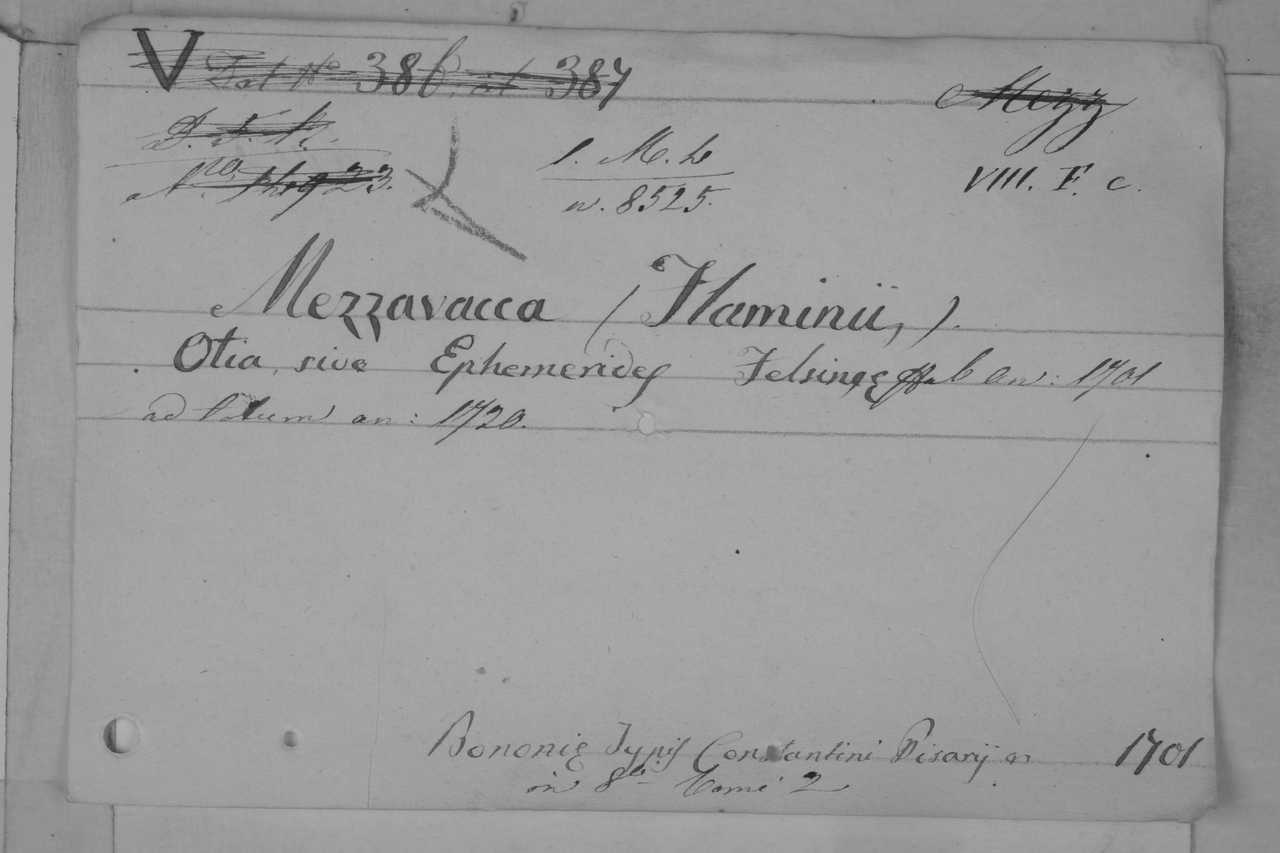 V Sal No 386. et 387
Mezz
S. M. L.
n. 8525.
VIII. F. c.
Mezzavacca (Flaminii,).
Otia, sive Ephemerides Felsinęę ab an: 1701
ad totum an: 1720.
Bononię Typis Constantini Pisarij an 1701
in 8º Tomi 2